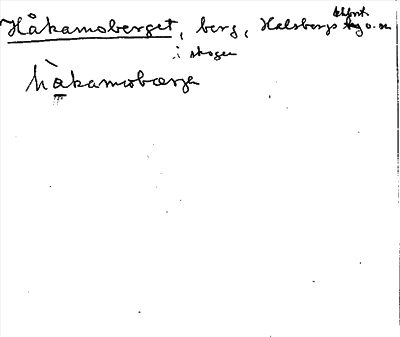 Håkamoberget, berg, Halsbergs
i skogen
håkamobærje